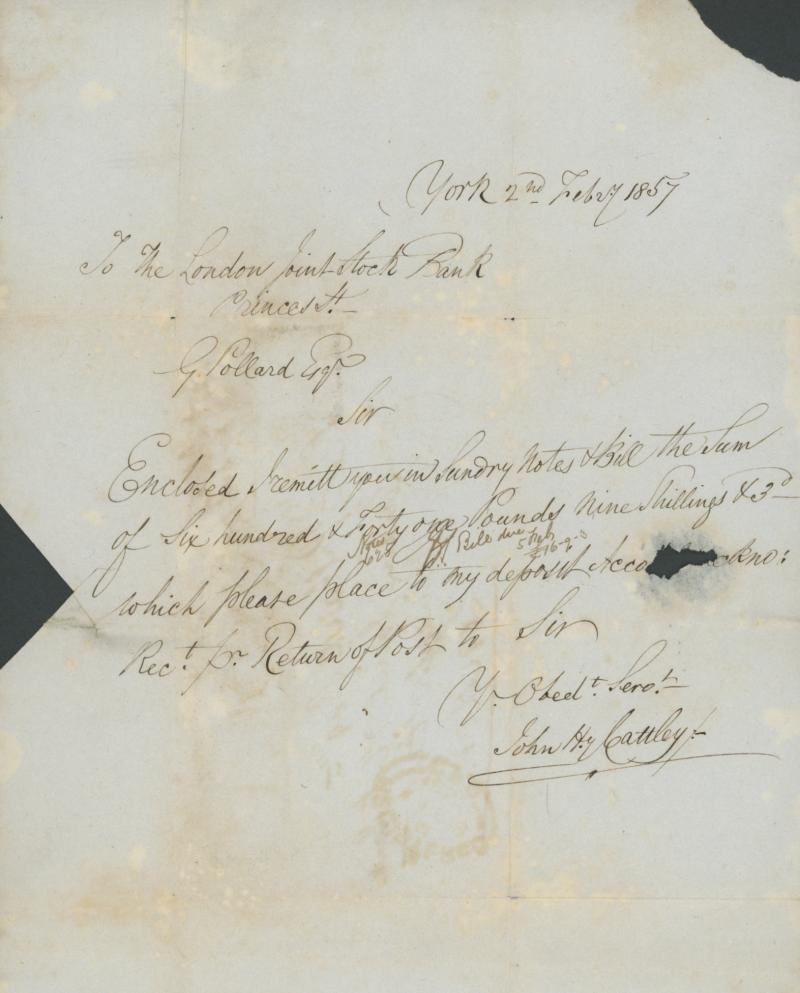 York 2nd Feby 1857
To The London Joint Stock Bank
Princes St
G Pollard Esqr.
Sir
Enclosed I remitt you in Sundry Notes & Bill the Sum
of Six hundred & Forty one Pounds Nine Shillings & 3d
Notes Bill due
625 16-9-
which please place to my deposit Acco ckno:
Rect. pr Return of Post to Sir
Yr Obedt. Servt
John Hy Cattley